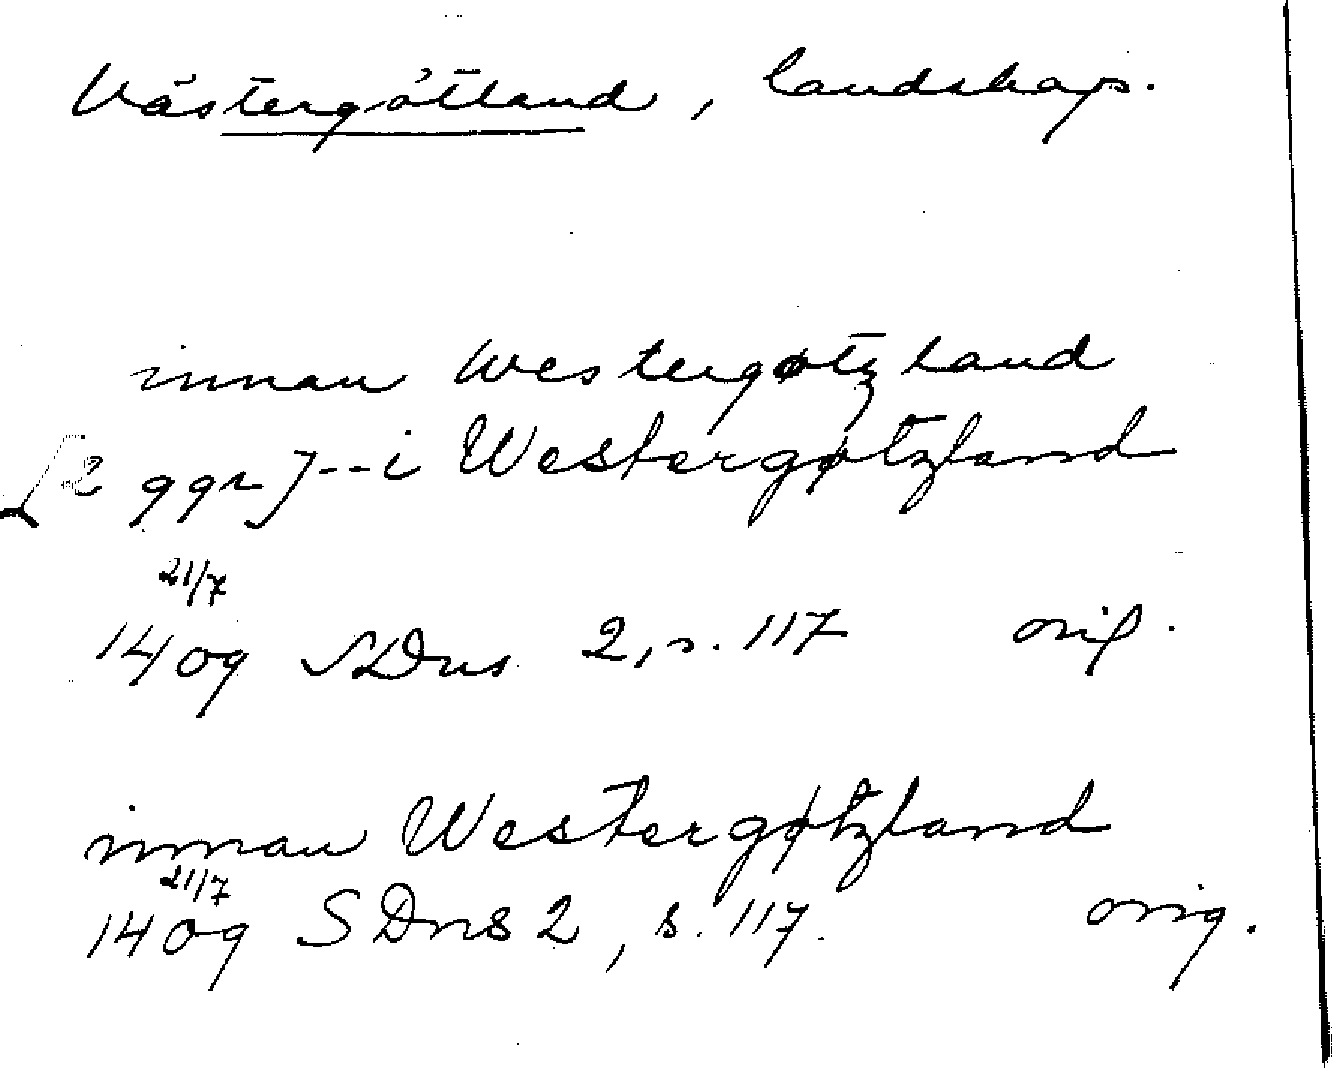 Västergötland, landskap.
innan Westergøtzland
[2 ggr]--i Westergøtzland
21/7
1409 SDns 2, s. 117 orig.
innan Westergøtzland
21/7
1409 SDns 2, s. 117. orig.